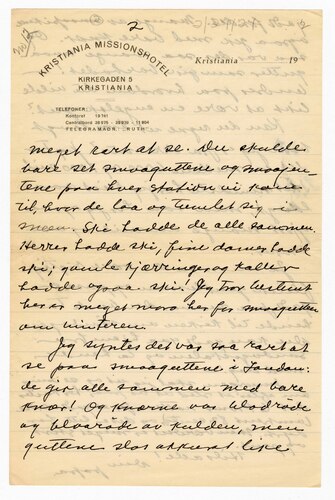 2
KRISTIANIA MISSIONSHOTEL
KIRKEGADEN 5
KRISTIANIA
Kristiania 19
TELEFONER:
Kontoret 19 741
Centralbord
TELEGRAMADR. "RUTH"
meget rart at se. Du skulde
bare set smaaguttene og smaajen-
tene paa hver station vi kom
til, hvor de laa og tumlet sig i
sneen. Ski hadde de alle sammen.
Herrer hadde ski, fine damer hadde
ski; gamle kjærringer og kaller
hadde ogsaa ski! Jeg tror bestemt
her er meget moro her for smaagutter
om vinteren.
Jeg syntes det var saa rart at
se paa smaaguttene i London:
de gik alle sammen med bare
knær! Og knærne var blodrøde
og blaarøde av kulden, men
guttene slos akkurat like